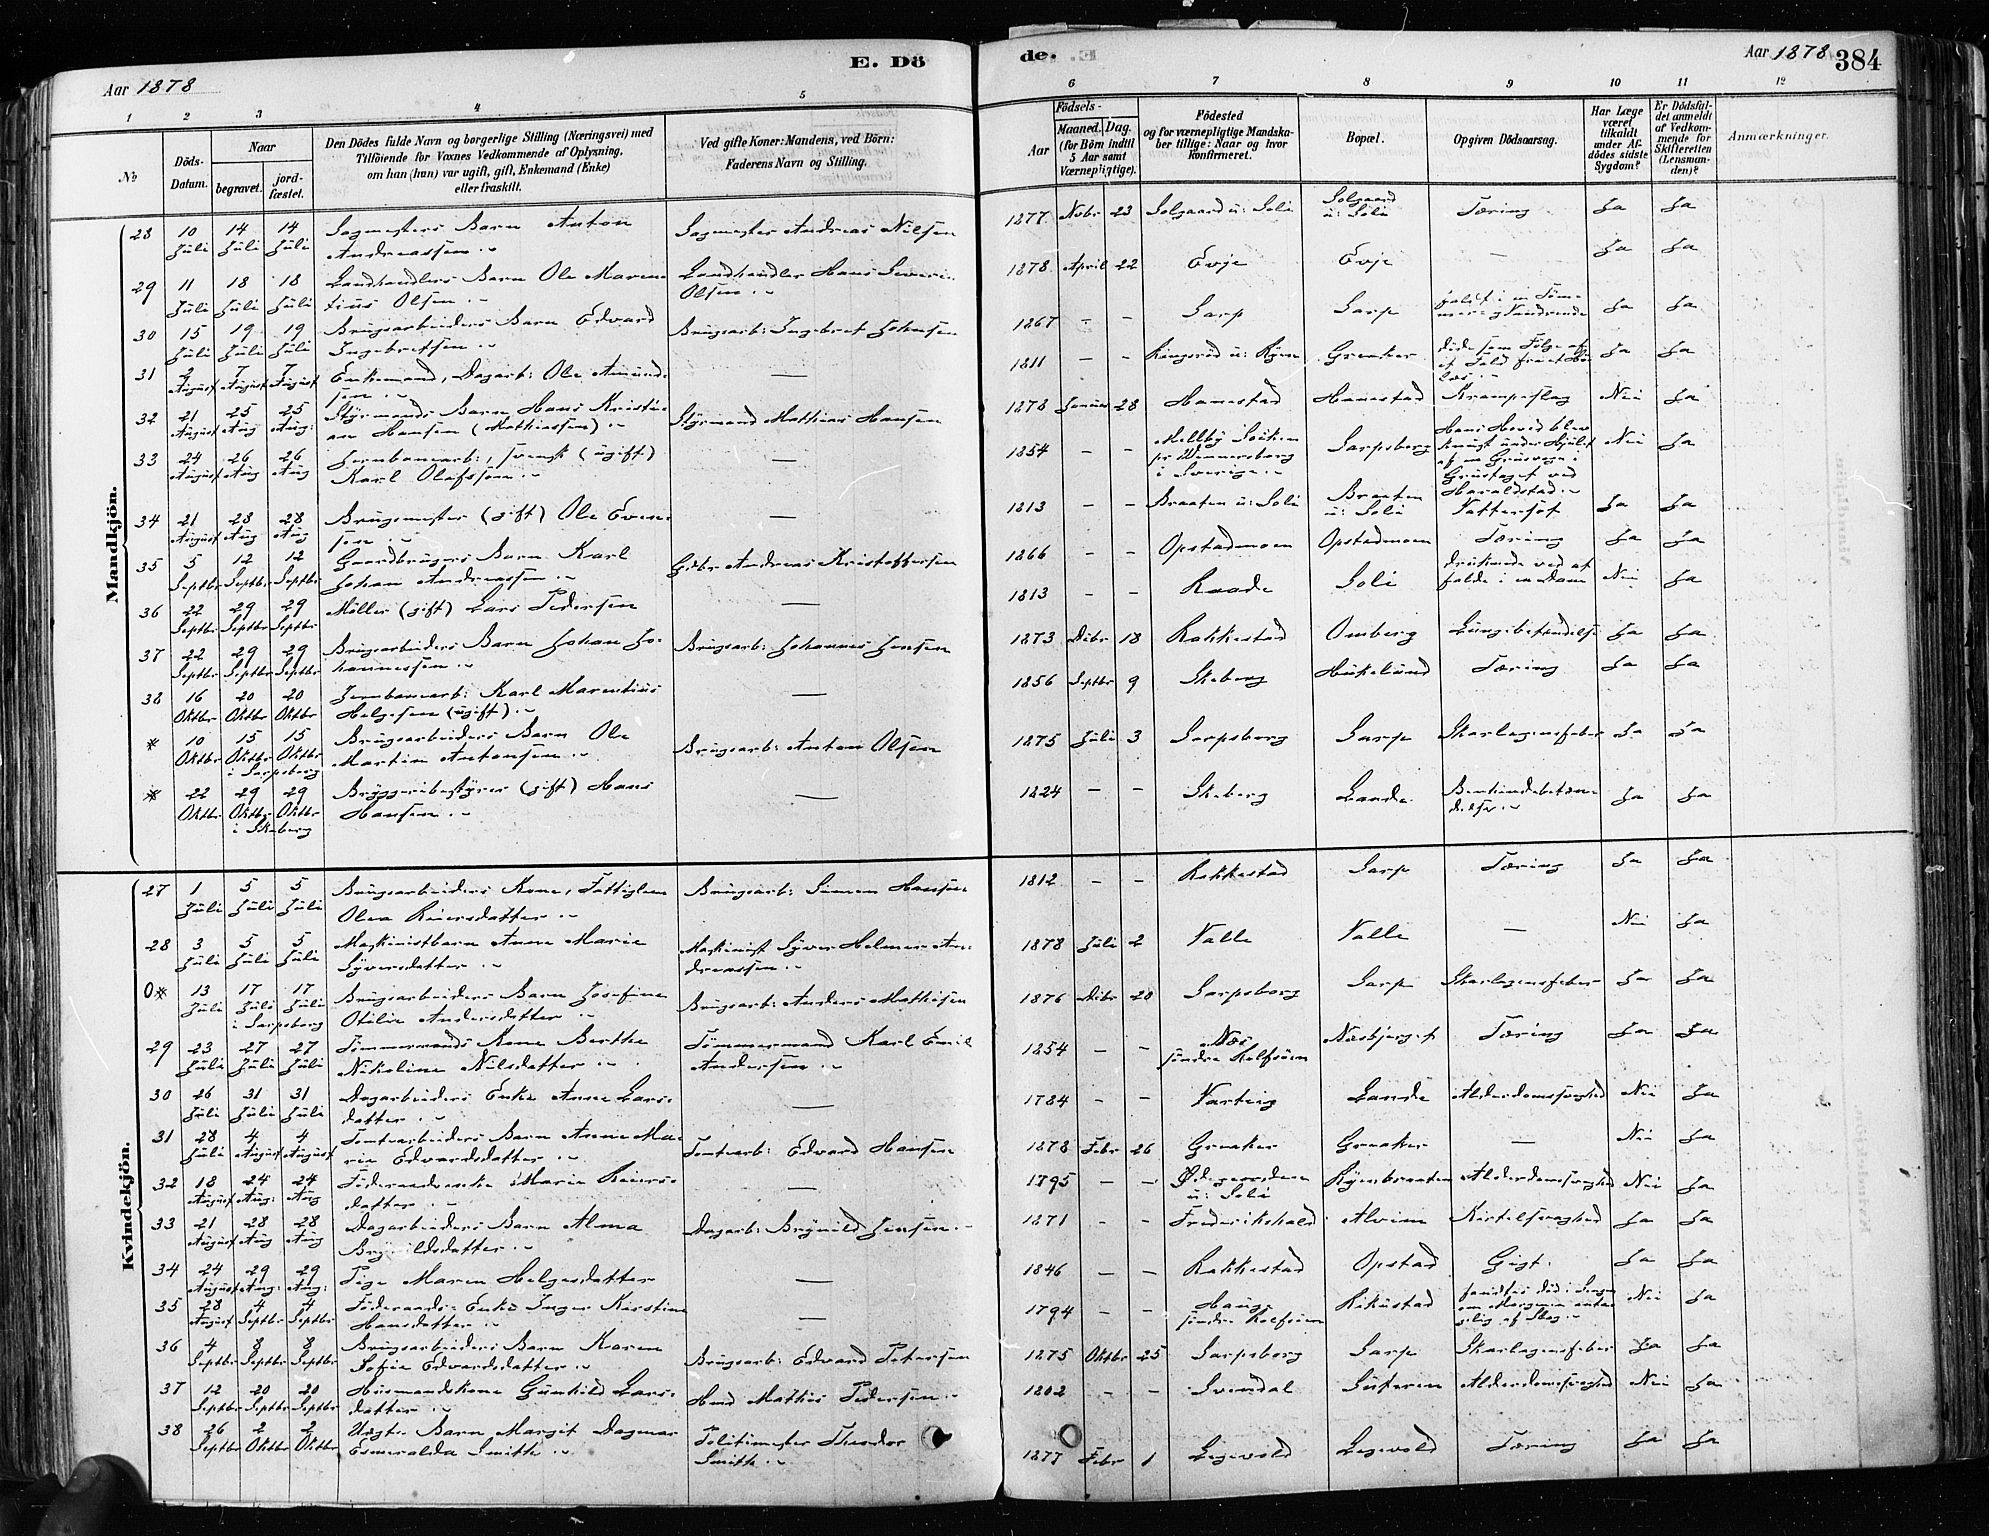 Aar 1878
E. Dö
de.
Aar 1878
384
1 2 3 4 5 6 7 8 9 10 11 12
No
Döds-Datum.
Naar
begravet.
jord-fæstet.
Den Dödes fulde Navn og borgerlige Stilling (Næringsvei) med
Tilföiende for Voxnes Vedkommende af Oplysning,
om han (hun) var ugift, gift, Enkemand (Enke)
eller fraskilt.
Ved gifte Koner: Mandens, ved Börn:
Faderens Navn og Stilling.
Födsels-
Aar
Maaned. Dag.
(for Börn indtil
5 Aar samt
Værnepligtige).
Födested
og for værnepligtige Mandska-
ber tillige: Naar og hvor
konfirmeret.
Bopæl.
Opgiven Dödsaarsag.
Har Læge
været
tilkaldt
under Af-
dödes sidste
Sygdom?
Er Dödsfal-
det anmeldt
af Vedkom-
mende for
Skifteretten
(Lensman-
den)?
Anmærkninger.
Mandkjön.
28 10 Juli 14 Juli 14 Juli Sagmesters Barn Anton Andreassen Sagmester Andreas Nilsen 1877 Novbr 23 Solgaard u: Soli Solgaard u: Soli Tæring Ja Ja
29 11 Juli 18 Juli 18 Juli Landhandlers Barn Ole Marentius Olsen Landhandler Hans Severin Olsen 1878 April 22 Evje Evje — Ja Ja
30 15 Juli 19 Juli 19 Juli Brugsarbeiders Barn Edvard Ingebretsen Brugsarb: Ingebret Johnsen 1867 — — Sarp Sarp Ja Ja
31 2 August 7 August 7 August Enkemand, Dagarb: Ole Amundsen — 1811 — — Greaker döde som Fölge af et Fald fra et Ja Ja
32 21 August 25 Aug 25 Aug: Styrmands Barn Hans Kristian Hansen (Mathiassen) Styrmand Mathias Hansen 1878 Januar 28 Hannestad Hannestad Krampeslag Nei Ja
33 24 August 26 Aug 26 Aug Jernbanearb:, svensk (ugift) Karl Olafssen — 1854 — — Mellby Soiken pr Wennersborg i Sverige Sarpsborg Hans Hoved blev knust under Hjulet af en Grusvogn i Grustaget ved Haraldstad Nei Ja
34 21 August 28 Aug 28 Aug Brugsmester (gift) Ole Evensen — 1813 — — Braaten u: Soli Braaten u: Soli Vattersot Ja Ja
35 5 Septbr 12 Septbr 12 Septbr Gaardbrugers Barn Karl Johan Andreassen Gdbr Andreas Kristoffersen 1866 — — Opstadmoen Opstadmoen Tæring Ja Ja
36 22 Septbr 29 Septbr 29 Septbr Möller (gift) Lars Pedersen — 1813 — — Raade Soli druknede ved at falde i en Dam Nei Ja
37 22 Septbr 29 Septbr 29 Septbr Brugsarbeiders Barn Johan Johannessen Brugsarb: Johannes Jensen 1873 Dcbr 18 Rakkestad Omberg Lungebetændelse Ja Ja
38 16 Oktbr 20 Oktbr 20 Oktbr Jernbanearb: Karl Marentius Helgesen (ugift) — 1856 Septbr 9 Skeberg Hukelund Tæring Ja Ja
* 10 Oktbr 15 Oktbr 15 Oktbr i Sarpsborg Brugsarbeiders Barn Ole Martin Antonsen Brugsarb: Anton Olsen 1875 Juli 3 Sarpsborg Sarp Skarlagensfeber Ja Ja
* 22 Oktbr 29 Oktbr 29 Oktbr i Skeberg Bryggeribestyrer (gift) Hans Hansen — 1824 — — Skeberg Lande Benhindebetændelse Ja Ja
Kvindekjön.
27 1 Juli 5 Juli 5 Juli Brugsarbeiders Kone, Fattiglem Olea Reiersdatter Brugsarb: Simen Hansen 1812 — — Rakkestad Sarp Tæring Ja Ja
28 3 Juli 5 Juli 5 Juli Maskinistbarn Anne Marie Syversdatter Maskinist Syver Helmer Andreassen 1878 Juli 2 Valle Valle — Nei Ja
0* 13 Juli 17 Juli 17 Juli i Sarpsborg Brugsarbeiders Barn Josefine Otilie Andersdatter Brugsarb: Anders Mathisen 1876 Dcbr 28 Sarpsborg Sarp Skarlagensfeber Ja Ja
29 23 Juli 27 Juli 27 Juli Tömmermands Kone Berthe Nikoline Nilsdatter Tömmermand Karl Emil Andersen 1854 — — Næs söndre Rolfsöen Næsbjerget Tæring Ja Ja
30 26 Juli 31 Juli 31 Juli Dagarbeiders Enke Anne Larsdatter — 1784 — — Varteig Lande Alderdomssvaghed Nei Ja
31 28 Juli 4 August 4 August Tomtearbeiders Barn Anne Marie Edvardsdatter Tomtearb: Edvard Hansen 1878 Febr 26 Greaker Greaker — Nei Ja
32 18 August 24 Aug: 24 Aug Föderaadsenke Marie Reiersdatter — 1795 — — Ödegaarden u: Soli Ryenbraaten Alderdomssvaghed Nei Ja
33 21 August 28 Aug 28 Aug Dagarbeiders Barn Alma Brynildsdatter Dagarb: Brynild Jensen 1871 — — Frederikshald Alvim Kirtelsvaghed Ja Ja
34 24 August 29 Aug: 29 Aug: Pige Maren Helgesdatter — 1846 — — Rakkestad Opstad Gigt Ja Ja
35 28 August 4 Septbr 4 Septbr Föderaads-Enke Inger Kirstine Hansdatter — 1794 — — Hauge söndre Rolfsöen Rikustad fandtes död i Sengen om Morgenen antagelig af Slag Nei Ja
36 4 Septbr 8 Septbr 8 Septbr Brugsarbeiders Barn Karen Sofie Edvardsdatter Brugsarb: Edvard Petersen 1875 Oktbr 25 Sarpsborg Sarp Skarlagensfeber Ja Ja
37 12 Septbr 20 Septbr 20 Septbr Husmandskone Gunhild Larsdatter Hmd Mathis Pedersen 1802 — — Svendal Alderdomssvaghed Nei Ja
38 26 Septbr 2 Oktbr 2 Oktbr Uægte Barn Margit Dagmar Esmeralda Smitth Politimester Theodor Smitth 1877 Febr 1 Legevold Legevold Tæring Ja Ja